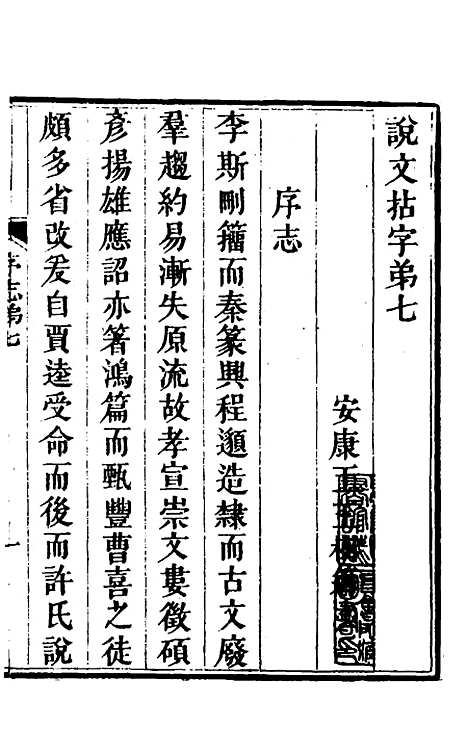 說文拈字弟七
安康王玉樹
序志
李斯刪籀而秦篆興程邈造隸而古文廢
羣趨約易漸失原流故孝宣崇文婁徵碩
彥揚雄應詔亦箸鴻篇而甄豐曹喜之徒
頗多省改爰自賈逵受命而後而許氏說
序志弟七
一